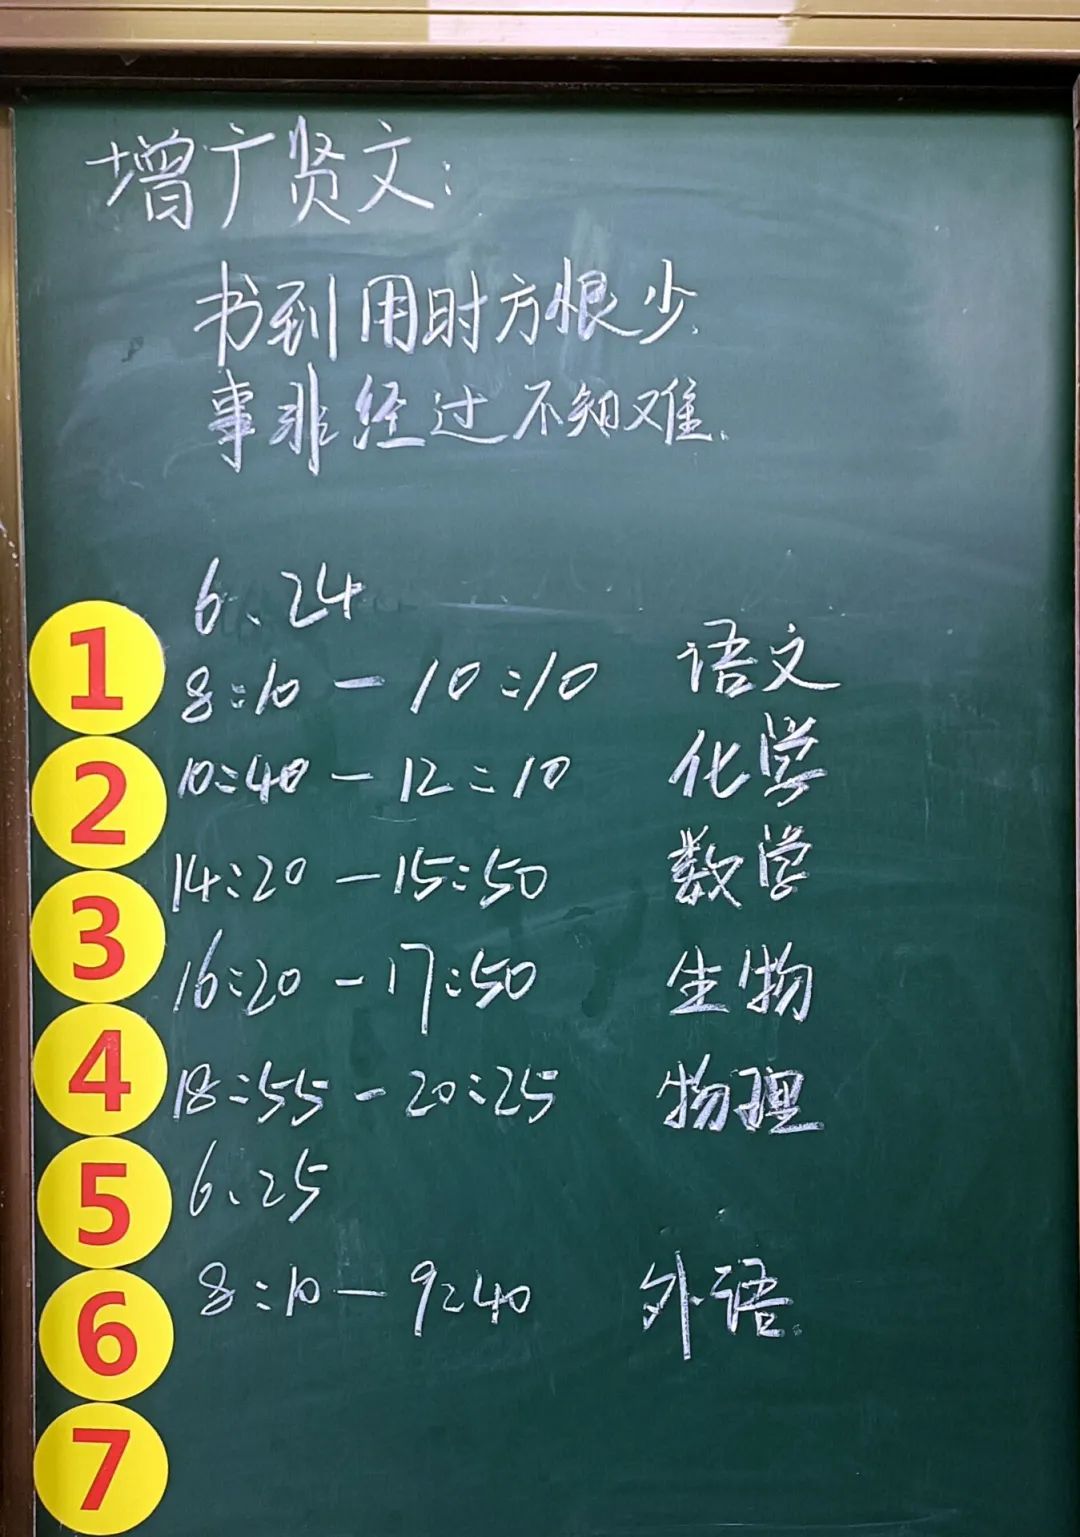 增广贤文:
书到用时方恨少.
事非经过不知难.
6、24
1 8:10 — 10:10 语文
2 10:40 — 12:10 化学
3 14:20 — 15:50 数学
16:20 — 17:50 生物
4 18:55 — 20:25 物理
5 6、25
6 8:10 — 9:40 外语.
7